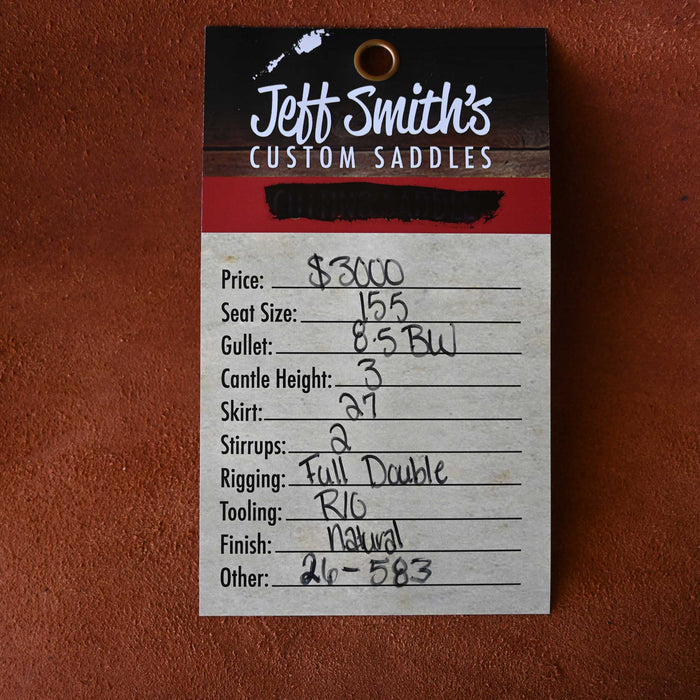 Jeff Smith's
CUSTOM SADDLES
Price: $3000
Seat Size: 155
Gullet: 8.5 BW
Cantle Height: 3
Skirt: 27
Stirrups: 2
Rigging: Full Double
Tooling: RIO
Finish: Natural
Other: 26-583